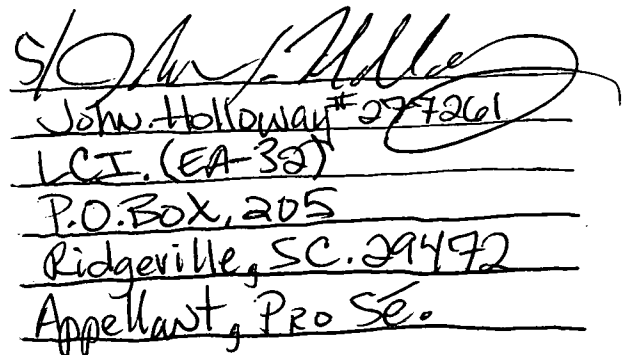 S/ John Holloway
John. Holloway #277261
LCI. (EA-32)
P.O. BOX, 205
Ridgeville, SC. 29472
Appellant, PRO SÉ.